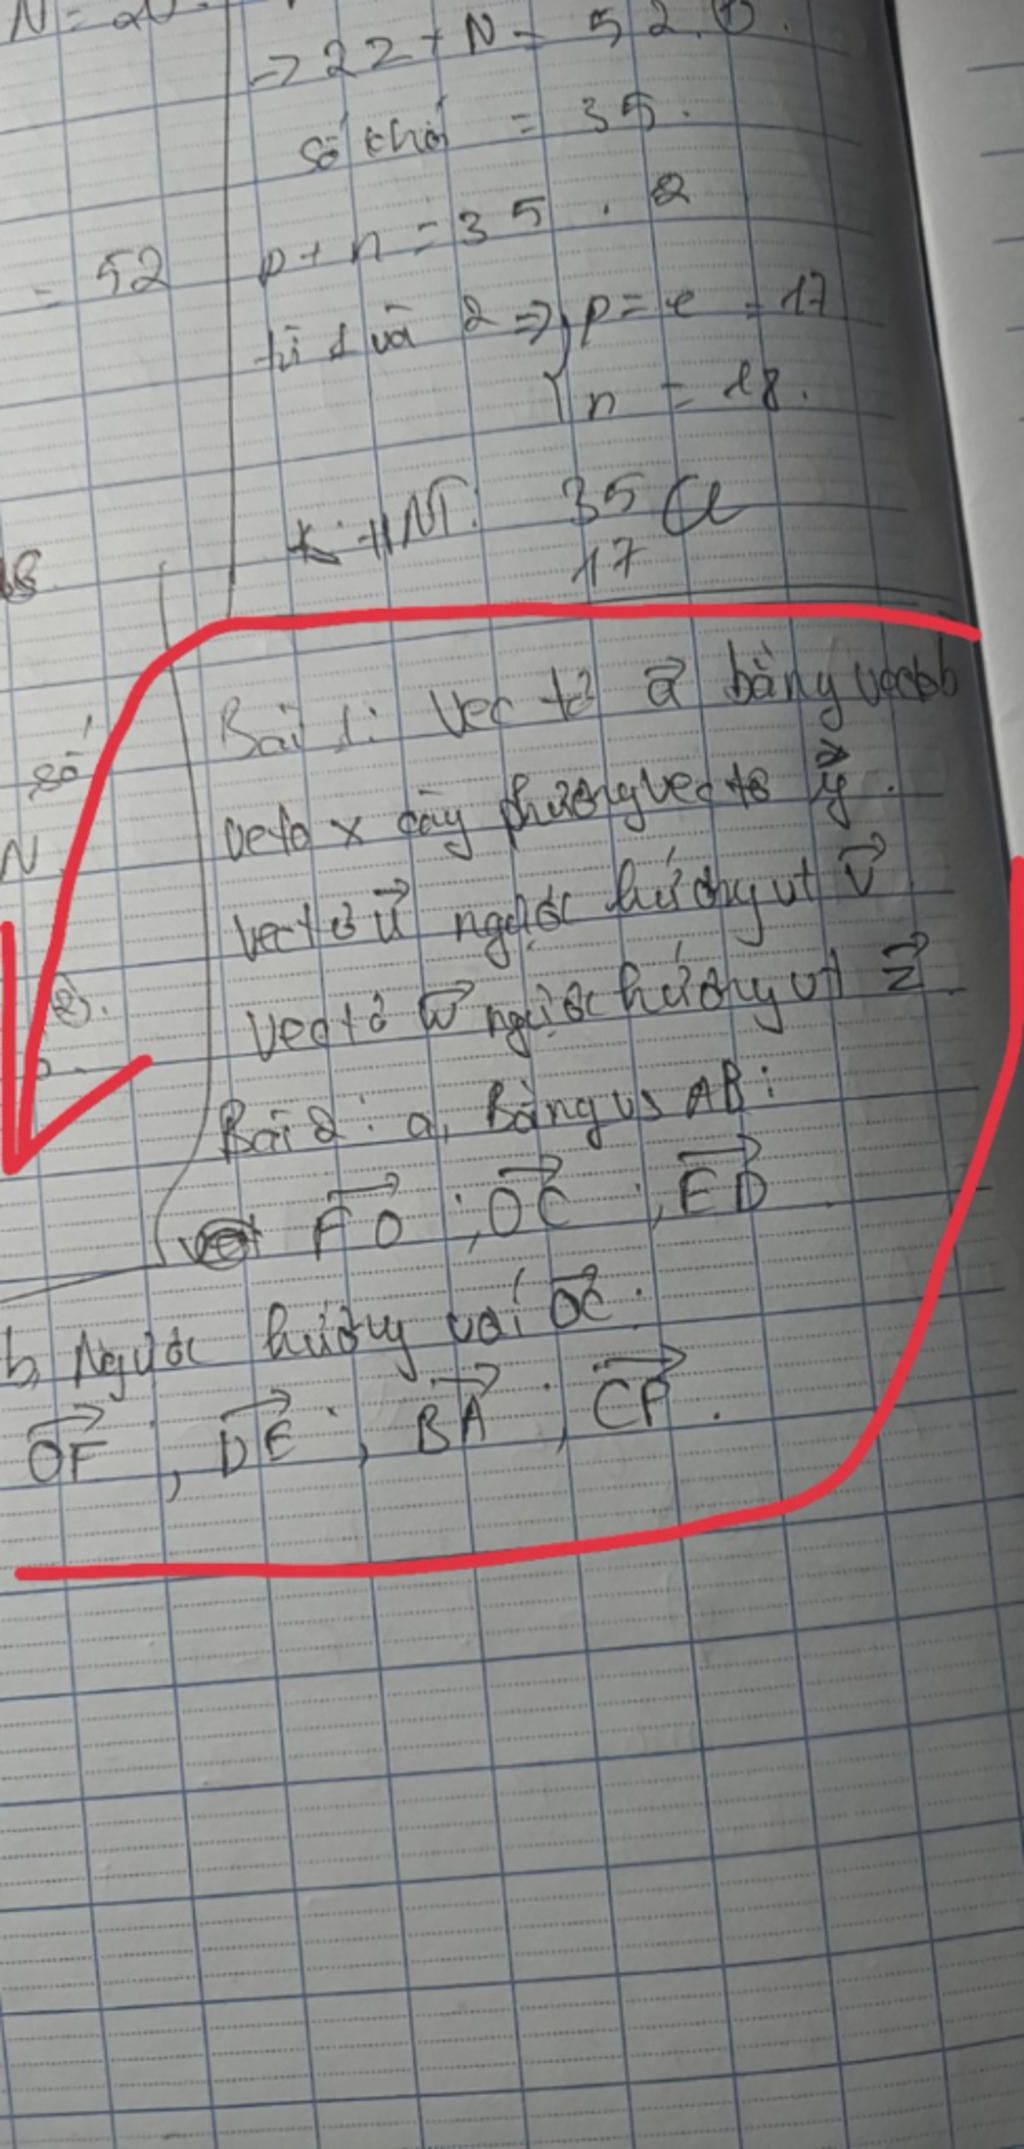 N = 20.
=> 2Z + N = 52. ①.
số khối = 35.
= 52
p + n = 35 . 2
từ 1 và 2 => p = e = 17
n = 18.
KHNT: 35 Cl
17
số
N
Bài 1: Vec tơ a⃗ bằng vectơ b
vetơ x cùng phương vectơ y⃗.
vectơ u⃗ ngược hướng vt v⃗
vectơ w⃗ ngược hướng vt z⃗
(2).
Bài 2: a, Bằng vs AB:
FO⃗ ; OC⃗ ; ED⃗
b, Ngược hướng với OC⃗:
OF⃗, DE⃗, BA⃗, CF⃗.